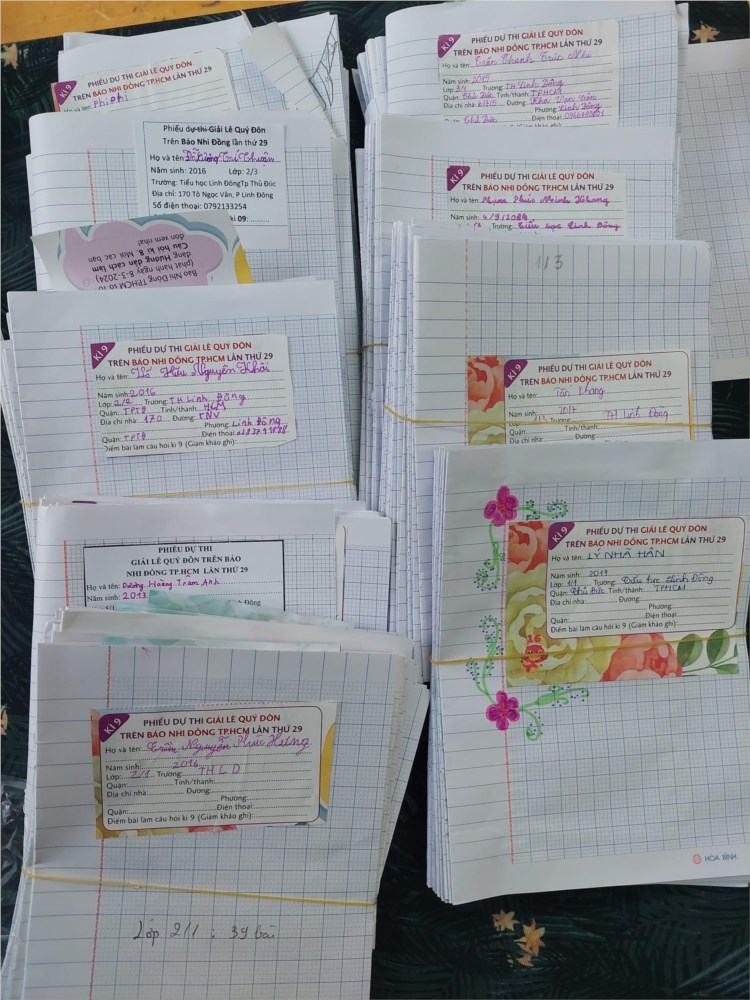 KÌ 9
PHIẾU DỰ THI GIẢI LÊ QUÝ ĐÔN
TRÊN BÁO NHI ĐỒNG TP.HCM LẦN THỨ 29
Họ và tên: Phi Phi
Phiếu dự thi Giải Lê Quý Đôn
Trên Báo Nhi Đồng lần thứ 29
Họ và tên
Năm sinh: 2016 Lớp: 2/3
Trường: Tiểu học Linh ĐôngTp Thủ Đức
Địa chỉ: 170 Tô Ngọc Vân, P Linh Đông
Số điện thoại: 0792133254
kì 09:
Báo Nhi Đồng TPHCM số 10
(phát hành ngày 8-3-2024)
đăng Hướng dẫn cách làm
Câu hỏi kì 8. Mời các bạn
đón xem nha!
KÌ 9
PHIẾU DỰ THI GIẢI LÊ QUÝ ĐÔN
TRÊN BÁO NHI ĐỒNG TP.HCM LẦN THỨ 29
Họ và tên: Võ Hữu Nguyên Khôi
Năm sinh: 2016
Lớp: 2/2 Trường: TH Linh Đông
Quận: TPTĐ Tỉnh/thành: HCM
Địa chỉ nhà: 170 Đường: TNV
Phường: Linh Đông
Quận: TPTĐ Điện thoại:
Điểm bài làm câu hỏi kì 9 (Giám khảo ghi):
PHIẾU DỰ THI
GIẢI LÊ QUÝ ĐÔN TRÊN BÁO
NHI ĐỒNG TP.HCM LẦN THỨ 29
Họ và tên: Dương Hoàng Trâm Anh
Năm sinh: 2013
KÌ 9
PHIẾU DỰ THI GIẢI LÊ QUÝ ĐÔN
TRÊN BÁO NHI ĐỒNG TP.HCM LẦN THỨ 29
Họ và tên: Trần Nguyễn Phúc Hưng
Năm sinh: 2016
Lớp: 2/1 Trường: THLD
Quận: Tỉnh/thành:
Địa chỉ nhà: Đường:
Phường:
Quận: Điện thoại:
Điểm bài làm câu hỏi kì 9 (Giám khảo ghi):
Lớp 2/1 : 39 bài
KÌ 9
PHIẾU DỰ THI GIẢI LÊ QUÝ ĐÔN
TRÊN BÁO NHI ĐỒNG TP.HCM LẦN THỨ 29
Họ và tên: Trần Thanh Trúc Như
Năm sinh: 2015
Lớp: 3/1 Trường: TH Linh Đông
Quận: Thủ Đức Tỉnh/thành: TPHCM
Địa chỉ nhà: Đường: Kha Vạn Cân
Phường: Linh Đông
Quận: Thủ Đức Điện thoại:
KÌ 9
PHIẾU DỰ THI GIẢI LÊ QUÝ ĐÔN
TRÊN BÁO NHI ĐỒNG TP.HCM LẦN THỨ 29
Họ và tên: Phúc Minh Khang
Năm sinh:
Trường: Tiểu học Linh Đông
1/3
KÌ 9
PHIẾU DỰ THI GIẢI LÊ QUÝ ĐÔN
TRÊN BÁO NHI ĐỒNG TP.HCM LẦN THỨ 29
Họ và tên: Tấn Khang
Năm sinh: 2017
Lớp: 1/3 Trường: TH Linh Đông
Quận: Tỉnh/thành:
Địa chỉ nhà: Đường:
KÌ 9
PHIẾU DỰ THI GIẢI LÊ QUÝ ĐÔN
TRÊN BÁO NHI ĐỒNG TP.HCM LẦN THỨ 29
Họ và tên: LÝ NHÃ HÂN
Năm sinh: 2017
Lớp: 1/1 Trường: Tiểu học Linh Đông
Quận: Thủ Đức Tỉnh/thành: TPHCM
Địa chỉ nhà: Đường:
Phường:
Quận: Điện thoại:
Điểm bài làm câu hỏi kì 9 (Giám khảo ghi):
16
HÒA BÌNH